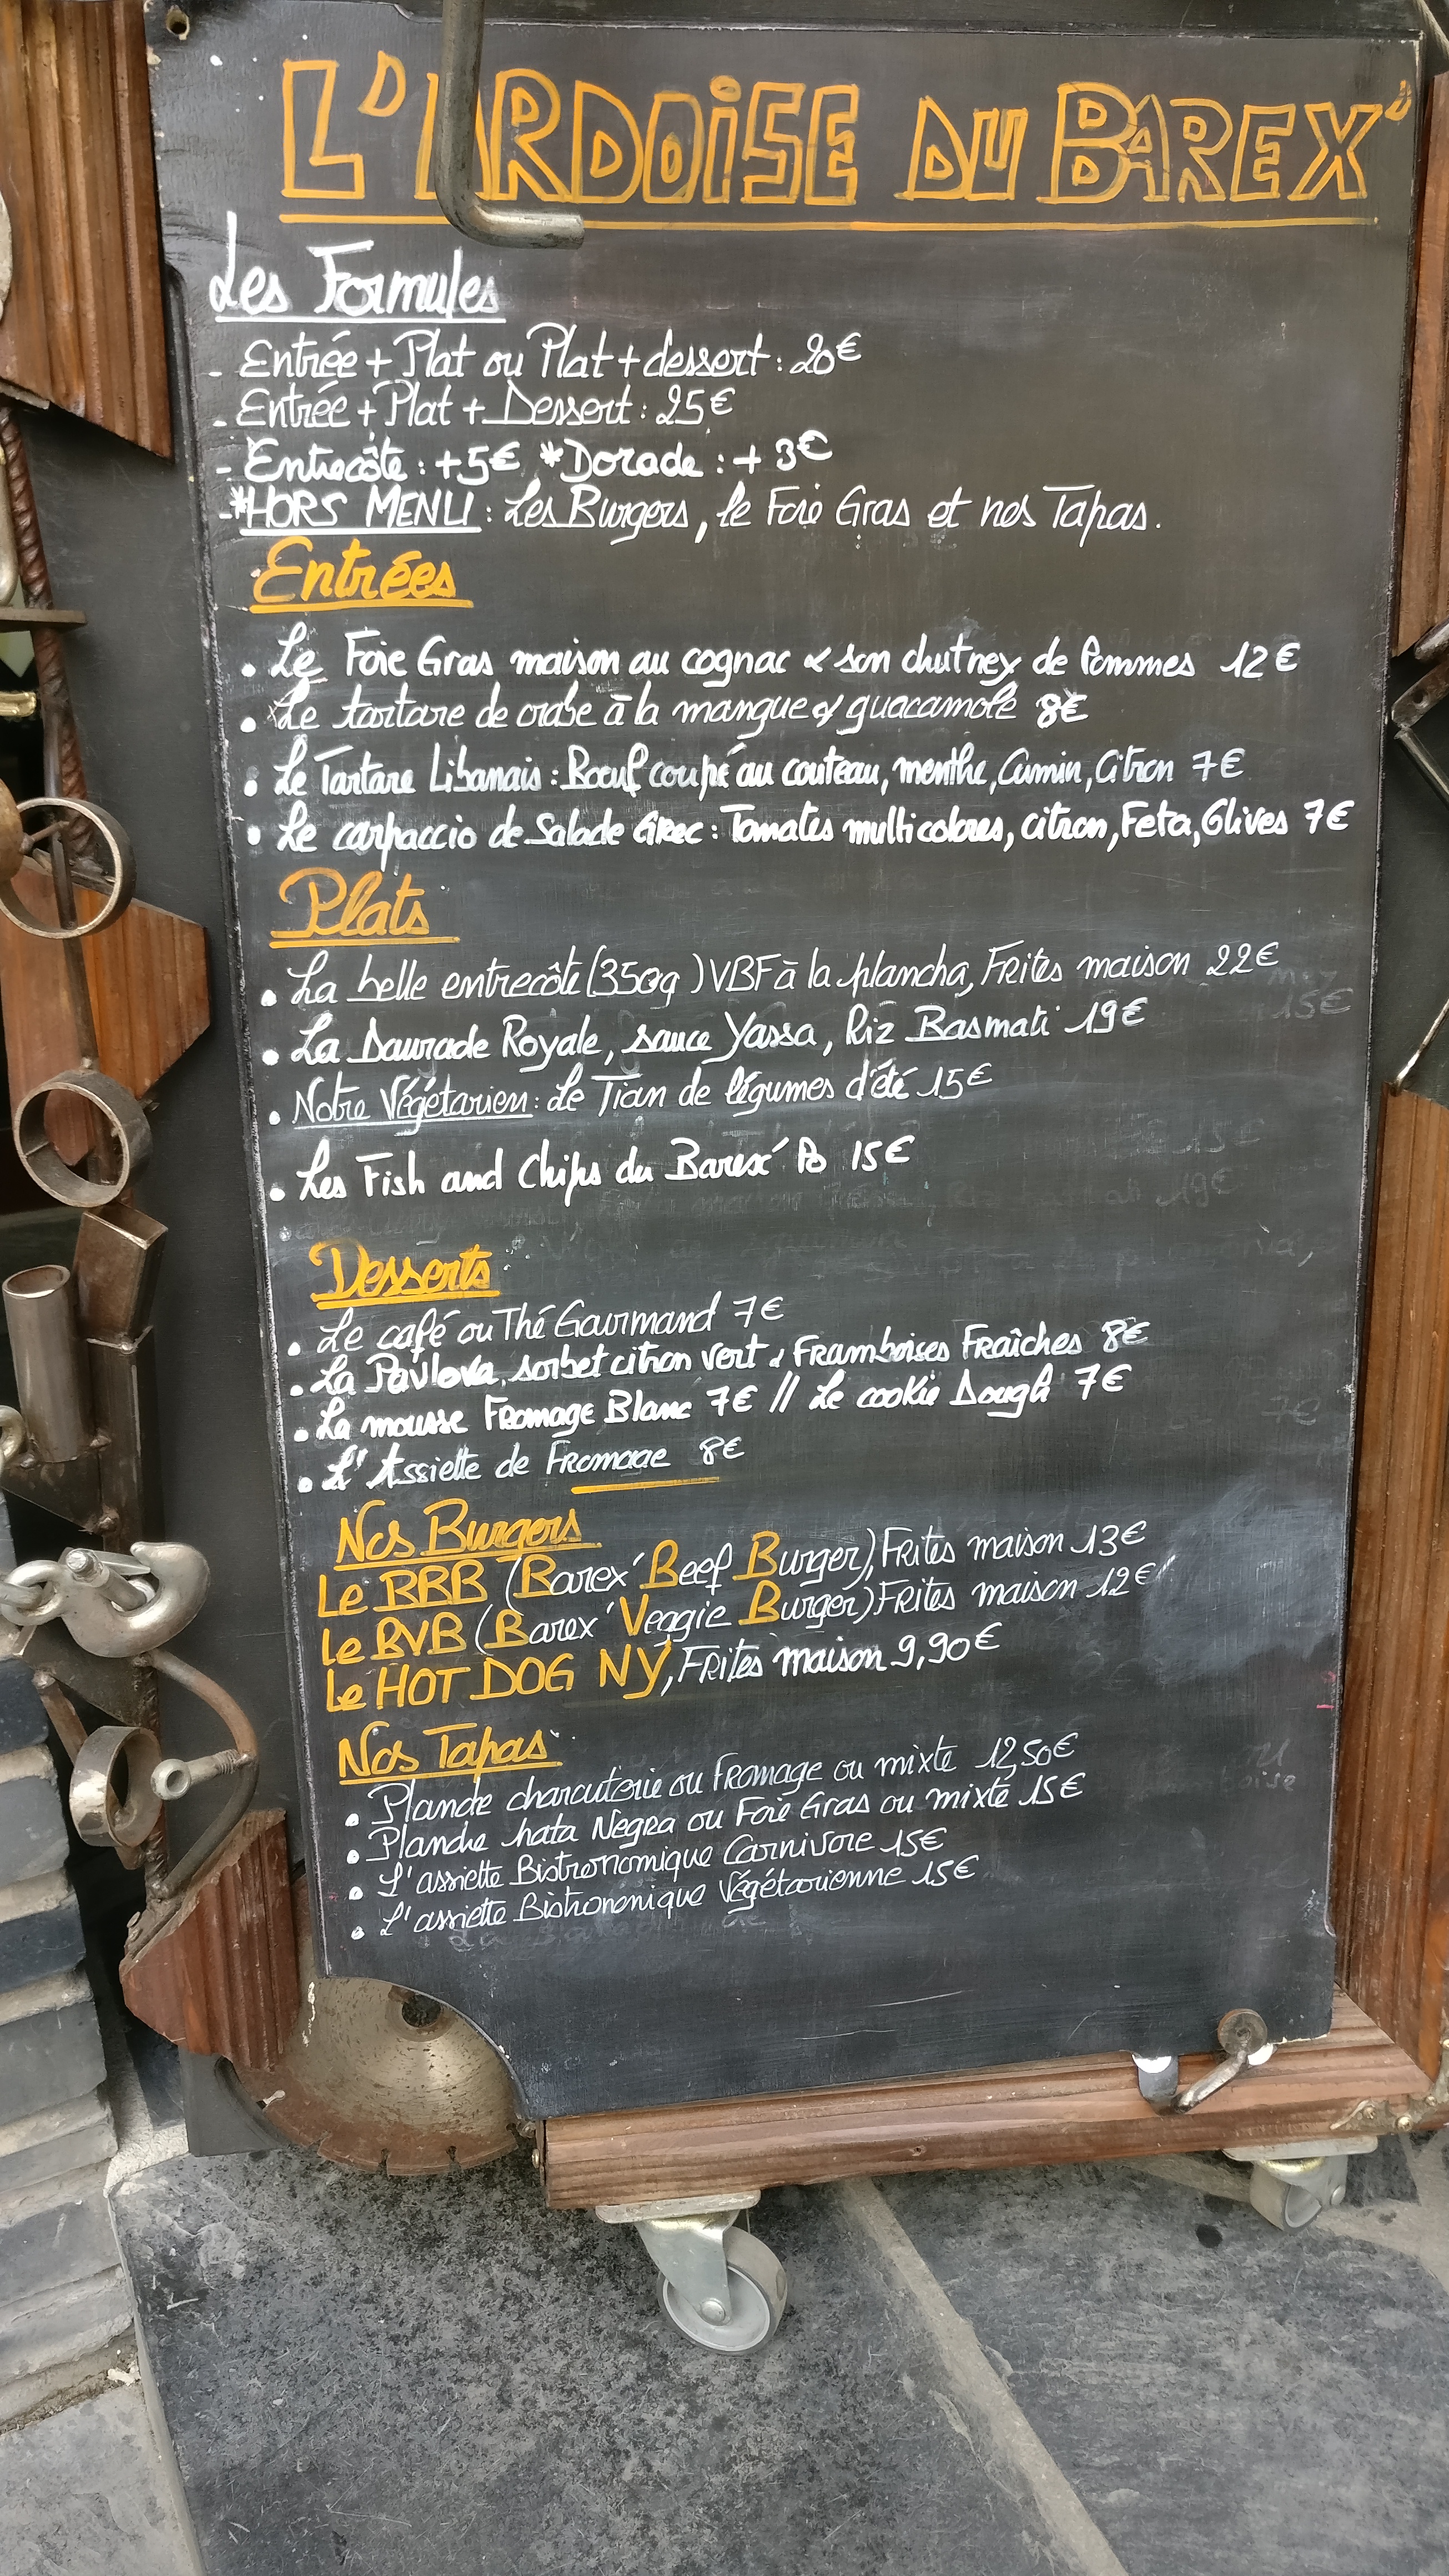 L'ARDOISE DU BAREX'
Les Formules
- Entrée + Plat ou Plat + dessert : 20€
- Entrée + Plat + Dessert : 25€
- Entrecôte : +5€ *Dorade : + 3€
-*HORS MENU : Les Burgers, le Foie Gras et nos Tapas.
Entrées
• Le Foie Gras maison au cognac & son chutney de Pommes 12€
• Le tartare de crabe à la mangue & guacamole 8€
• Le Tartare Libanais : Boeuf coupé au couteau, menthe, Cumin, Citron 7€
• Le carpaccio de Salade Grec : Tomates multicolores, citron, Feta, Olives 7€
Plats
• La belle entrecôte (350g) VBF à la plancha, Frites maison 22€
• La Daurade Royale, sauce Yassa, Riz Basmati 19€
• Notre Végétarien : Le Tian de légumes d'été 15€
• Les Fish and Chips du Barex' 15€
Desserts
• Le café ou Thé Gourmand 7€
• La Pavlova, sorbet citron vert & Framboises Fraîches 8€
• La mousse Fromage Blanc 7€ // Le cookie Dough 7€
• L'Assiette de Fromage 8€
Nos Burgers
Le BBB (Barex' Beef Burger), Frites maison 13€
Le BVB (Barex' Veggie Burger) Frites maison 12€
Le HOT DOG NY, Frites maison 9,90€
Nos Tapas
• Planche charcuterie ou fromage ou mixte 12,50€
• Planche Pata Negra ou Foie Gras ou mixte 15€
• L'assiette Bistronomique Carnivore 15€
• L'assiette Bistronomique Végétarienne 15€